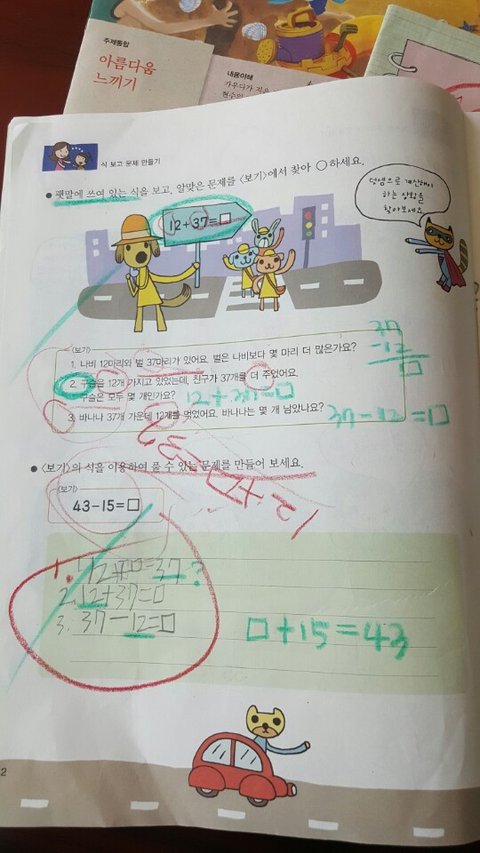 주제통합
아름다움
느끼기
내용이해
식 보고 문제 만들기
● 팻말에 쓰여 있는 식을 보고, 알맞은 문제를 〈보기〉에서 찾아 ○하세요.
덧셈으로 계산해야
하는 상황을
찾아보세요
12+37=□
〈보기〉
1. 나비 12마리와 벌 37마리가 있어요. 벌은 나비보다 몇 마리 더 많은가요?
37
-12
□
2. 구슬을 12개 가지고 있었는데, 친구가 37개를 더 주었어요.
구슬은 모두 몇 개인가요?
12+37=□
3. 바나나 37개 가운데 12개를 먹었어요. 바나나는 몇 개 남았나요?
37-12=□
12+□=37
● 〈보기〉의 식을 이용하여 풀 수 있는 문제를 만들어 보세요.
〈보기〉
43-15=□
1. 12+□=37?
2. 12+37=□
3. 37-12=□
□+15=43
2